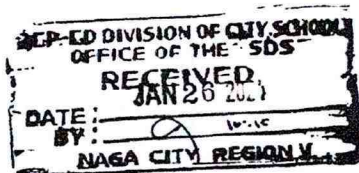 DEP-ED DIVISION OF CITY SCHOOLS
OFFICE OF THE SDS
RECEIVED
JAN 26
DATE:
BY:
NAGA CITY, REGION V